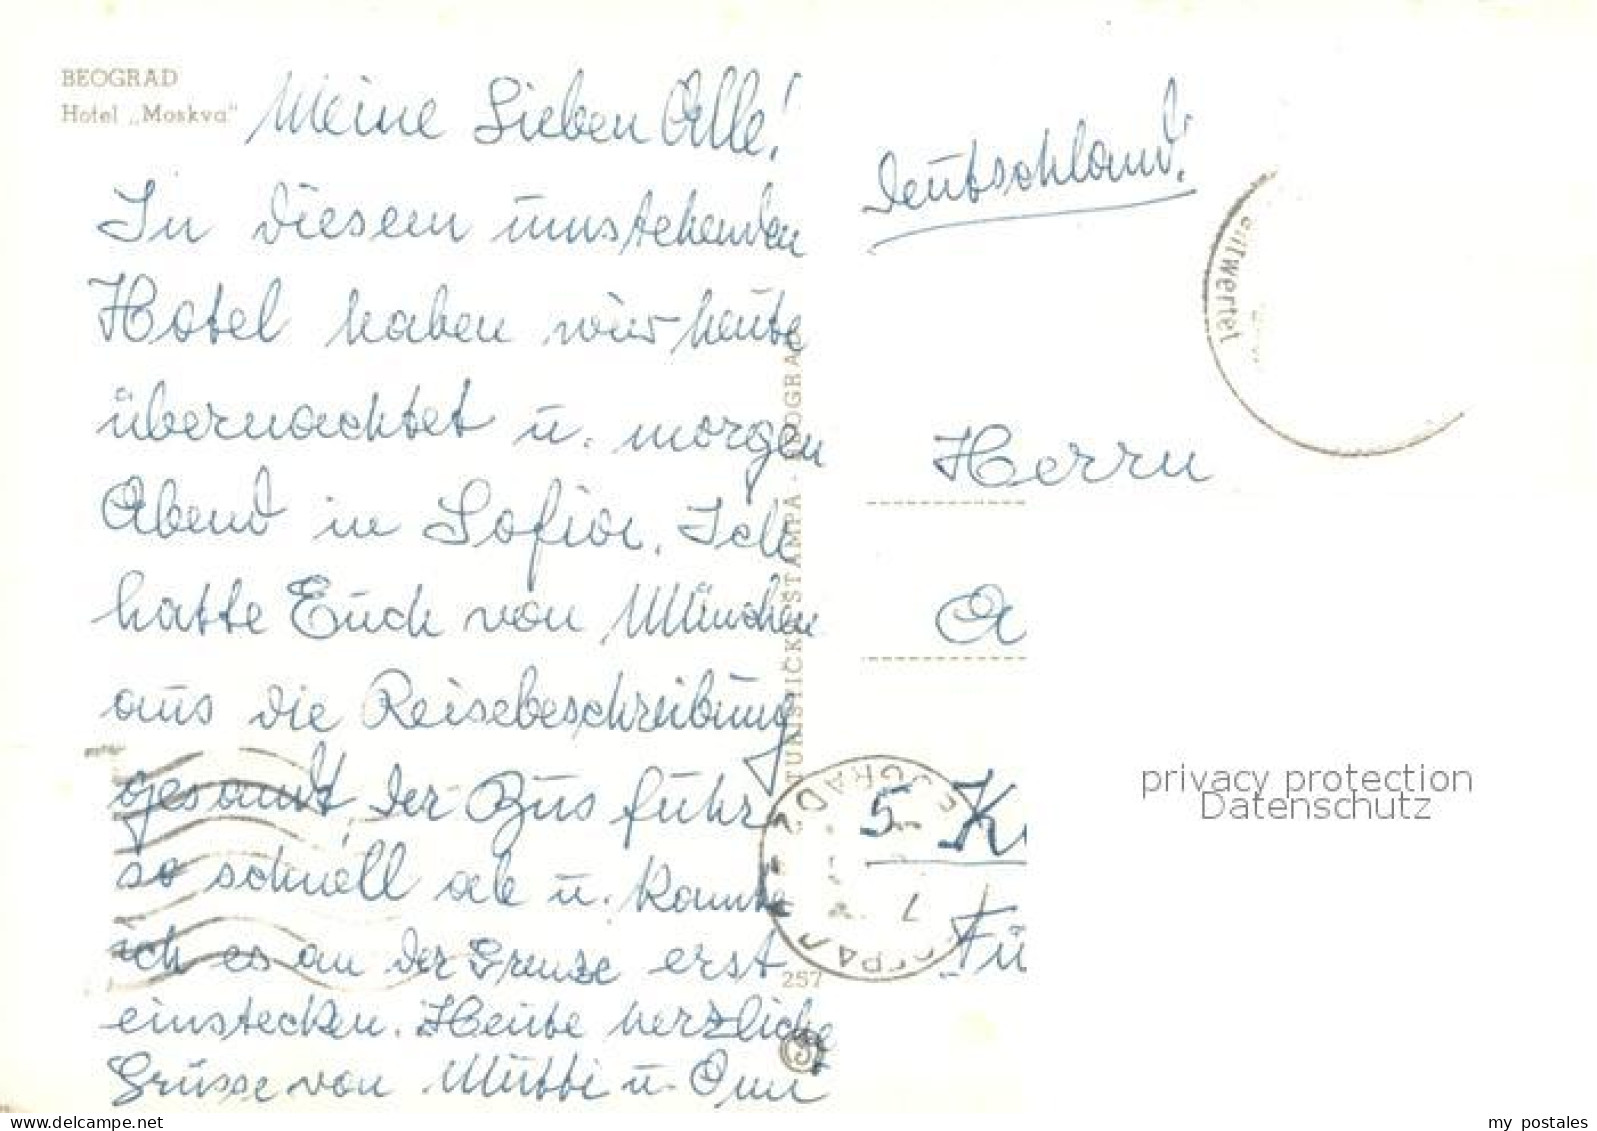 BEOGRAD
Hotel „Moskva"
Meine Lieben Alle!
In diesem umstehenden
Hotel haben wir heute
übernachtet u. morgen
Abend in Sofia. Ich
hatte Euch von München
aus die Reisebeschreibung
gesandt, der Bus fuhr
so schnell ab u. konnte
ich es an der Grenze erst
einstecken. Heute herzliche
Grüsse von Mutti u. Omi
TURISTIČKA ŠTAMPA - BEOGRAD
257
Deutschland!
entwertet
Herrn
A
5 K
Fü
privacy protection
Datenschutz
my postales